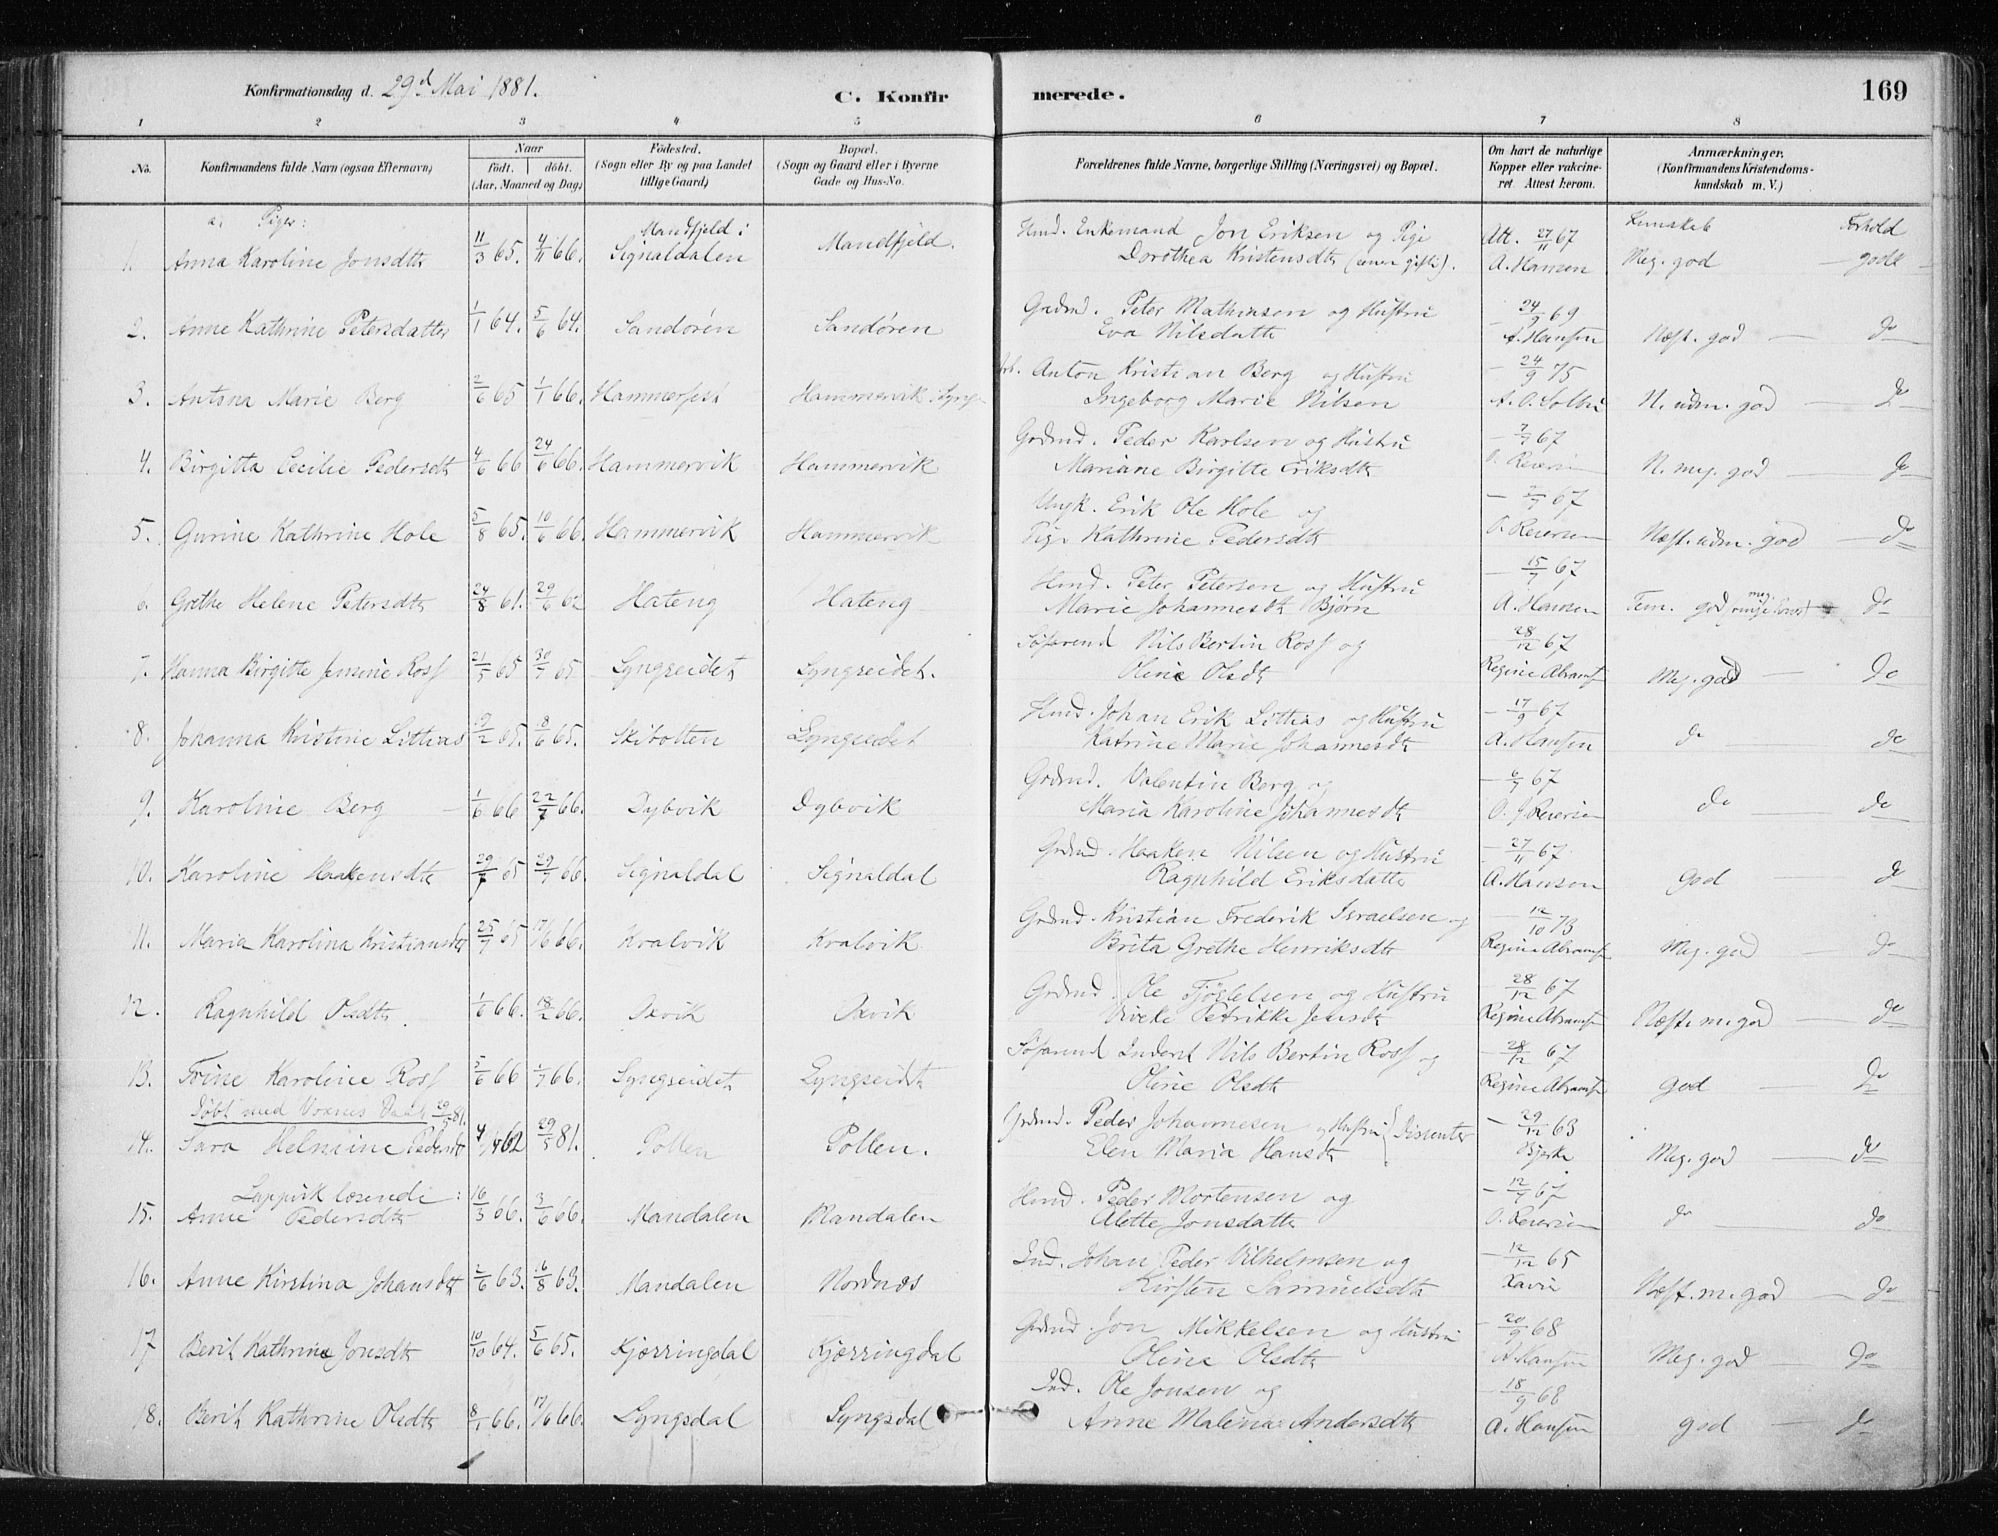 Konfirmationsdag d. 29d Mai 1881.
C. Konfir
merede.
169
1 2 3 4 5 6 7 8
No.
Konfirmandens fulde Navn (ogsaa Efternavn)
Naar
født. døbt.
(Aar, Maaned og Dag)
Fødested.
(Sogn eller By og paa Landet
tillige Gaard)
Bopæl.
(Sogn og Gaard eller i Byerne
Gade og Hus-No.
Forældrenes fulde Navne, borgerlige Stilling (Næringsvei) og Bopæl.
Om havt de naturlige
Kopper eller vakcine-
ret. Attest herom.
Anmærkninger.
(Konfirmandens Kristendoms-
kundskab m. V.)
a. Piger:
Kunskab Forhold
1. Anna Karoline Jonsdtr 11/3 65. 4/11 66. Mandfjeld i Signaldalen Mandfjeld.
Hmd. Enkemand Jon Eriksen og Pige
Dorothea Kristensdtr
Att. 27/11 67
A. Hansen
Meg. god godt
2. Anne Kathrine Petersdatter 1/1 64. 5/6 64. Sandøren Sandøren
Grdmd. Peter Mathiasen og Hustru
Eva Nilsdattr
24/9 69
A. Hansen
Næst. god do
3. Antona Marie Berg 2/6 65 1/1 66. Hammerfest Hammervik i Lyngen
Arb. Anton Kristian Berg og Hustru
Ingeborg Marie Nilsen
24/9 75
N. udm. god do
4. Birgitta Cecilie Pedersdtr 4/6 66 24/6 66. Hammervik Hammervik
Grdmd. Peder Karlsen og Hustru
Mariane Birgitte Eriksdtr
7/7 67
O. Reiersen
N. meg. god do
5. Gurine Kathrine Hole 5/8 65. 10/6 66. Hammervik Hammervik
Ungk. Erik Ole Hole og
Pige Kathrine Pedersdtr
7/7 67
O. Reiersen
Næst. udm. god do
6. Grethe Helene Petersdtr 24/8 61. 29/6 62 Hateng Hateng
Hmd. Peter Petersen og Hustru
Marie Johannesdtr Bjørn
15/7 67
A. Hansen
Tem. god do
7. Hanna Birgitte Jensine Ross 21/5 65 30/7 65 Lyngseidet Lyngseidet.
Søfarend Nils Bertin Ross og
Oline Olsdtr
28/12 67
Regine Abrams
Meg. god do
8. Johanna Kristine Littias 19/2 65. 8/6 65. Skibotten Lyngseidet
Hmd. Johan Erik Littias og Hustru
Katrine Marie Johannesdtr
17/9 67
A. Hansen
do do
9. Karoline Berg 1/6 66 22/7 66. Dybvik Dybvik
Grdmd. Valentin Berg og
Maria Karoline Johannesdtr
6/7 67
O. J. Reiersen
do do
10. Karoline Haakensdtr 29/7 65 29/7 66. Signaldal Signaldal
Grdmd. Haaken Nilsen og Hustru
Ragnhild Eriksdatter
27/11 67.
A. Hansen
god do
11. Maria Karolina Kristiansdtr 25/7 65 17/6 66. Kvalvik Kvalvik
Grdmd. Kristian Frederik Israelsen og
Brita Grethe Henriksdtr
12/10 73
Regine Abrams
Meg. god do
12. Ragnhild Olsdtr. 1/6 66. 18/2 66. Oxvik Oxvik
Grdmd. Ole Fjøslelsen og Hustru
Viveke Petrikke Jensdtr
28/12 67
Regine Abrams
Næst. m. god do
13. Trine Karoline Ross 5/6 66 1/7 66. Lyngseidet Lyngseidet
Søfarend Inderst Nils Bertin Ross og
Oline Olsdtr
28/12 67
Regine Abrams
god do
Døbt med Voxnes Daab 29/5 81.
14. Sara Helmine Pedersdtr 62 29/5 81. Pollen Pollen.
Grdmd. Peder Johannesen og Hustru
Elen Maria Hansdtr
Dissenter
29/12 63
Bjerke
Meg. god do
Lappisk læsende:
15. Anne Pedersdtr 16/3 66. 3/6 66. Mandalen Mandalen
Hmd. Peder Mortensen og
Alette Jonsdattr
12/7 67
O. Reiersen
do do
16. Anne Kirstina Johansdtr 2/6 63. 16/8 63. Mandalen Nordnæs
Ind. Johan Peder Vilhelmsen og
Kirsten Samuelsdtr
12/12 65
Xavier
Næst. m. god do
17 Berit Kathrine Jonsdtr 10/10 64. 5/6 65. Kjærringdal Kjærringdal
Grdmd. Jon Mikkelsen og Hustru
Oline Olsdtr
20/9 68
A. Hansen
Meg. god do
18. Berit Kathrine Olsdtr 8/1 66. 17/6 66. Lyngsdal Lyngsdal
Ind. Ole Jonsen og
Anne Malena Andersdtr
18/9 68
A. Hansen
god do